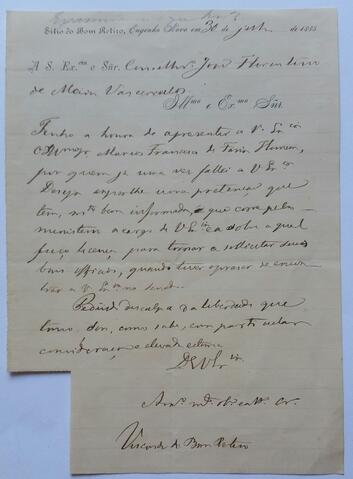 Sitio do Bom Retiro, Engenho Novo em 30 de de 1885
A S. Ex.ma o Sñr. Conselhr.o José Florentino
de Vasconcelos
Ill.mo e Ex.mo Sñr.
Tenho a honra de apresentar a V. Ex.cia
o Amigo Marcos Francisco de Faria
por quem ja uma vez fallei a V. Ex.cia
Deseja expor lhe uma pretenção que
tem, bem informada, e que corre pelo
ministerio a cargo de V. Ex.cia e a sobre a qual
peço licença para tornar a sollicitar seus
bons officios, quando tiver de encon
trar a V. Ex.cia no senado.
Pedindo desculpa da liberdade que
tomo, sou, como sabe, com particular
consideração e elevada estima
De V. Ex.cia
Am.o m.to obr.o
Visconde de Bom Retiro